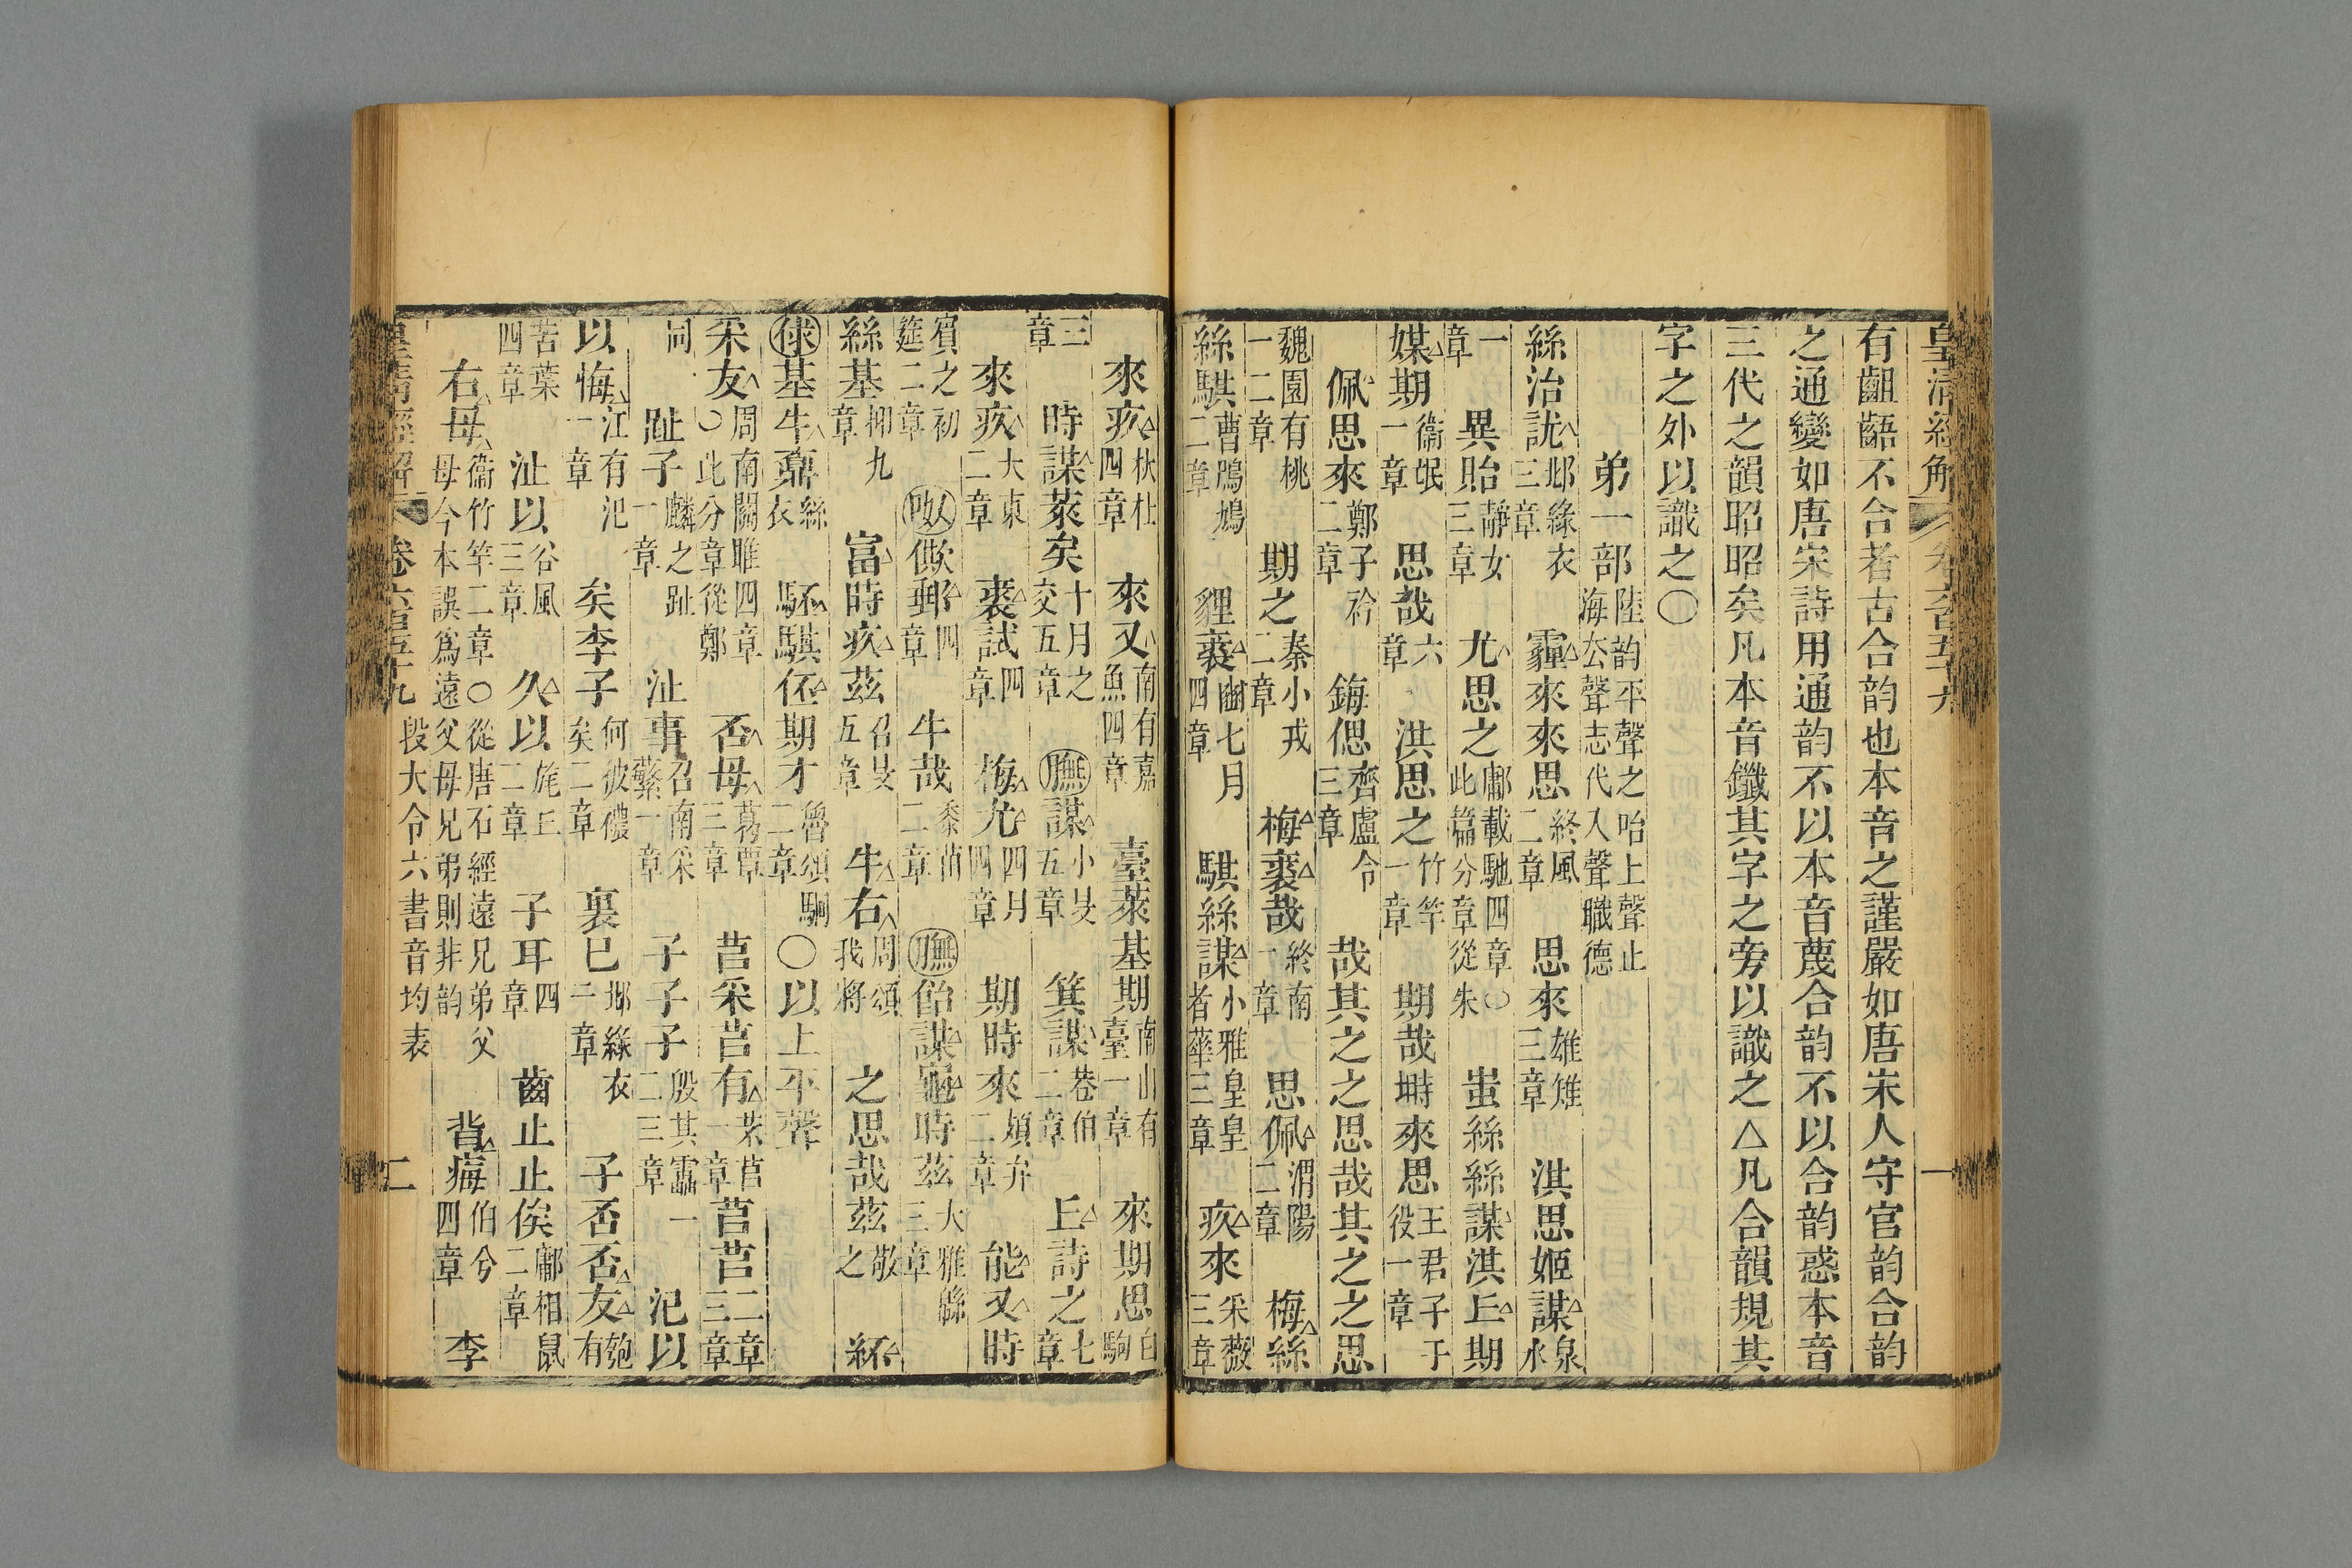 皇清經解 卷六百五十九 一
有齟齬不合者古合韵也本音之謹嚴如唐宋人守官韵合韵
之通變如唐宋詩用通韵不以本音蔑合韵不以合韵惑本音
三代之韻昭昭矣凡本音鑯其字之旁以識之△凡合韻規其
字之外以識之〇
弟一部 陸韵平聲之咍上聲止海去聲志代入聲職德
絲治訧△ 邶綠衣三章 霾△來來思 終風二章 思來 雄雉三章 淇思姬謀△ 泉水
一章 異貽 靜女三章 尤△思之 鄘載馳四章〇此篇分章從朱 蚩絲絲謀△淇丘△期
媒△期 衞氓一章 思哉 六章 淇思之 竹竿一章 期哉塒來思 王君子于役一章
佩△思來 鄭子衿二章 鋂偲 齊盧令三章 哉其之之思哉其之之思
魏園有桃一二章 期之 秦小戎二章 梅△裘△哉 終南一章 思佩△ 渭陽二章 梅△絲
絲騏 曹鳲鳩二章 貍裘△ 豳七月四章 騏絲謀△ 小雅皇皇者華三章 疚△來 采薇三章
來疚△ 杕杜四章 來又△ 南有嘉魚四章 臺萊基期 南山有臺一章 來期思 白駒
三章 時謀△萊矣 十月之交五章 膴謀△ 小旻五章 箕謀△ 巷伯二章 丘△詩之 七章
來疚△ 大東二章 裘△試 四章 梅△尤△ 四月四章 期時來 頍弁二章 能△又△時
賓之初筵二章 呶僛郵△ 四章 牛哉 黍苗二章 膴飴謀△龜△時茲 大雅緜三章
絲基 抑九章 富△時疚△茲 召旻五章 牛△右△ 周頌我將 之思哉茲 敬之 紑△
俅基牛△鼒 絲衣 駓△騏伾△期才 魯頌駉二章 〇以上平聲
采友△ 周南關雎四章〇此分章從鄭 否△母△ 葛覃三章 苢采苢有△ 芣苢一章 苢苢 二章三章
同 趾子 麟之趾一章 沚事 召南采蘩一章 子子子 殷其靁一二三章 汜以
以悔△ 江有汜一章 矣李子 何彼襛矣二章 裏已 邶綠衣一章 子否否△友△ 匏有
苦葉四章 沚以 谷風三章 久△以 旄丘二章 子耳 四章 齒止止俟 鄘相鼠二章
右△母△ 衞竹竿二章〇從唐石經遠兄弟父母今本誤爲遠父母兄弟則非韵 背△痗 伯兮四章 李
皇清經解 卷六百五十九 段大令六書音均表 二